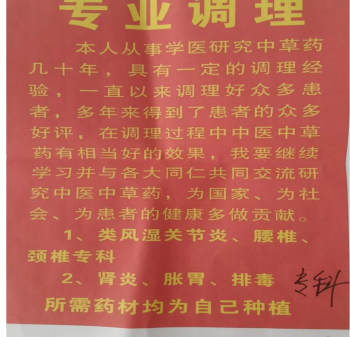 专业调理
本人从事学医研究中草药
几十年，具有一定的调理经
验，一直以来调理好众多患
者，多年来得到了患者的众多
好评，在调理过程中中医中草
药有相当好的效果，我要继续
学习并与各大同仁共同交流研
究中医中草药，为国家、为社
会、为患者的健康多做贡献。
1、类风湿关节炎、腰椎、
颈椎专科
2、肾炎、胀胃、排毒 专科
所需药材均为自己种植